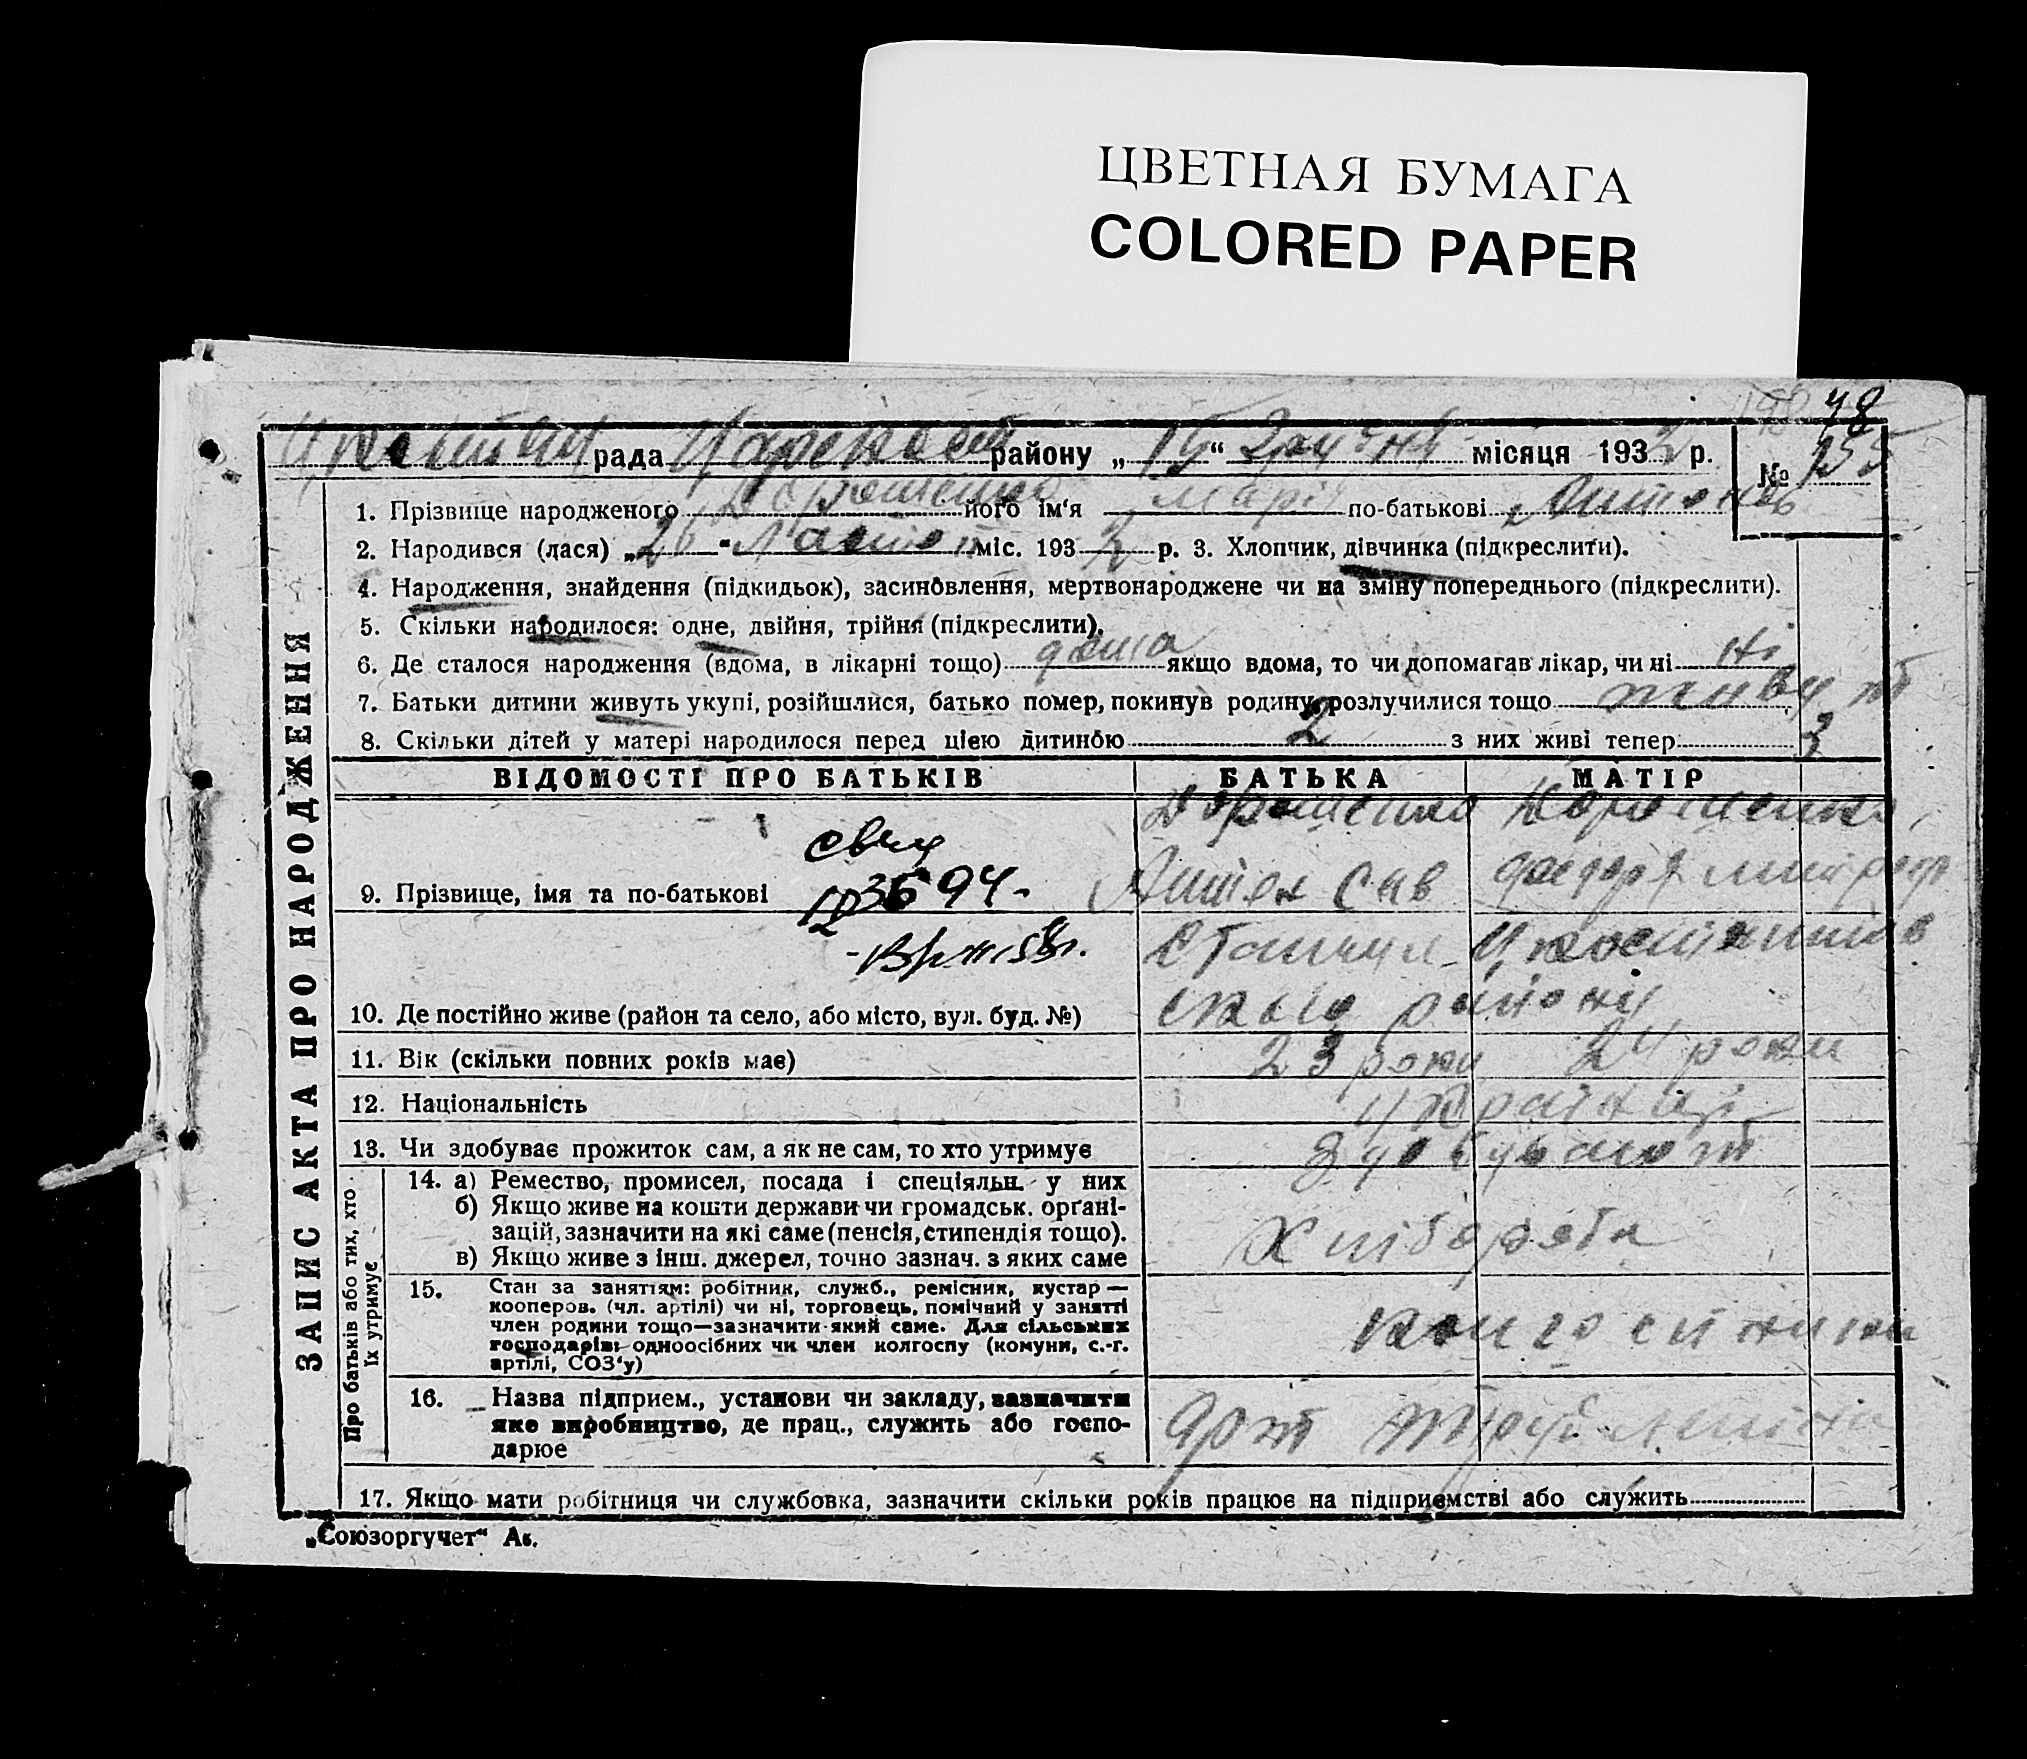 ЦВЕТНАЯ БУМАГА
COLORED PAPER
48
рада району „15“ місяця 193 р.
№ 155
1. Прізвище народженого Дорошенко його ім'я Марія по-батькові Антонов
2. Народився (лася) „26“ міс. 1932 р. 3. Хлопчик, дівчинка (підкреслити).
4. Народження, знайдення (підкидьок), засиновлення, мертвонароджене чи на зміну попереднього (підкреслити).
5. Скільки народилося: одне, двійня, трійня (підкреслити).
6. Де сталося народження (вдома, в лікарні тощо) дома якщо вдома, то чи допомагав лікар, чи ні ні
7. Батьки дитини живуть укупі, розійшлися, батько помер, покинув родину, розлучилися тощо живут
8. Скільки дітей у матері народилося перед цією дитиною 2 з них живі тепер 3
ВІДОМОСТІ ПРО БАТЬКІВ БАТЬКА МАТІР
Дорошенко Дорошенко
9. Прізвище, імя та по-батькові Антон Сав
10. Де постійно живе (район та село, або місто, вул. буд. №) району
11. Вік (скільки повних років має) 23 роки 24 роки
12. Національність українці
13. Чи здобуває прожиток сам, а як не сам, то хто утримує здобувают
Про батьків або тих, хто їх утримує
14. а) Ремество, промисел, посада і спеціяльн. у них
б) Якщо живе на кошти держави чи громадськ. орґані-
зацій, зазначити на які саме (пенсія, стипендія тощо).
в) Якщо живе з інш. джерел, точно зазнач. з яких саме
Хлібороби
15. Стан за заняттям: робітник, служб., ремісник, кустар —
кооперов. (чл. артілі) чи ні, торговець, помічний у занятті
член родини тощо—зазначити який саме. Для сільських
господарів: одноосібних чи член колгоспу (комуни, с.-г.
артілі, СОЗ'у)
16. Назва підприєм., установи чи закладу, зазначити
яке виробництво, де прац., служить або госпо-
дарює
17. Якщо мати робітниця чи службовка, зазначити скільки років працює на підприємстві або служить
ЗАПИС АКТА ПРО НАРОДЖЕННЯ
„Союзоргучет“ Ак.